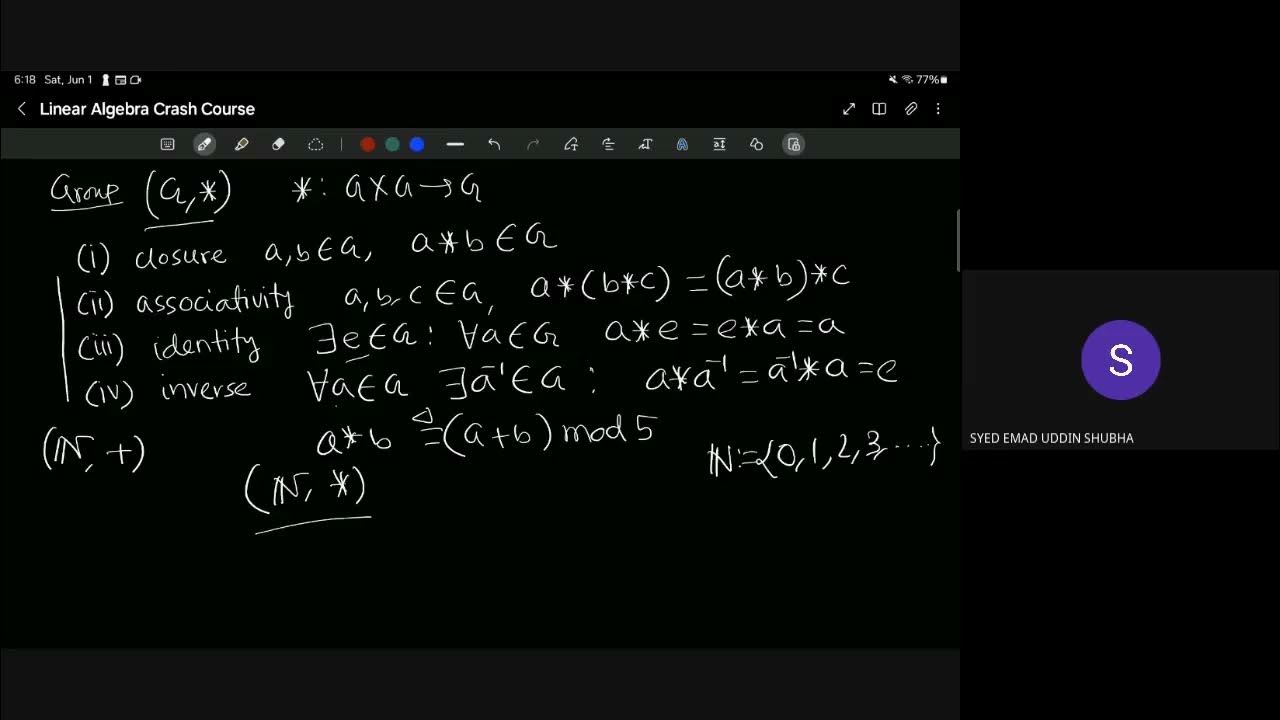 6:18 Sat, Jun 1 77%
Linear Algebra Crash Course
Group (G,*) *: G×G→G
(i) closure a,b∈G, a*b∈G
(ii) associativity a,b,c∈G, a*(b*c)=(a*b)*c
(iii) identity ∃e∈G: ∀a∈G a*e=e*a=a
(iv) inverse ∀a∈G ∃a⁻¹∈G: a*a⁻¹=a⁻¹*a=e
(ℕ,+) a*b ≜(a+b) mod 5 ℕ:={0,1,2,3,....}
(ℕ,*)
S
SYED EMAD UDDIN SHUBHA